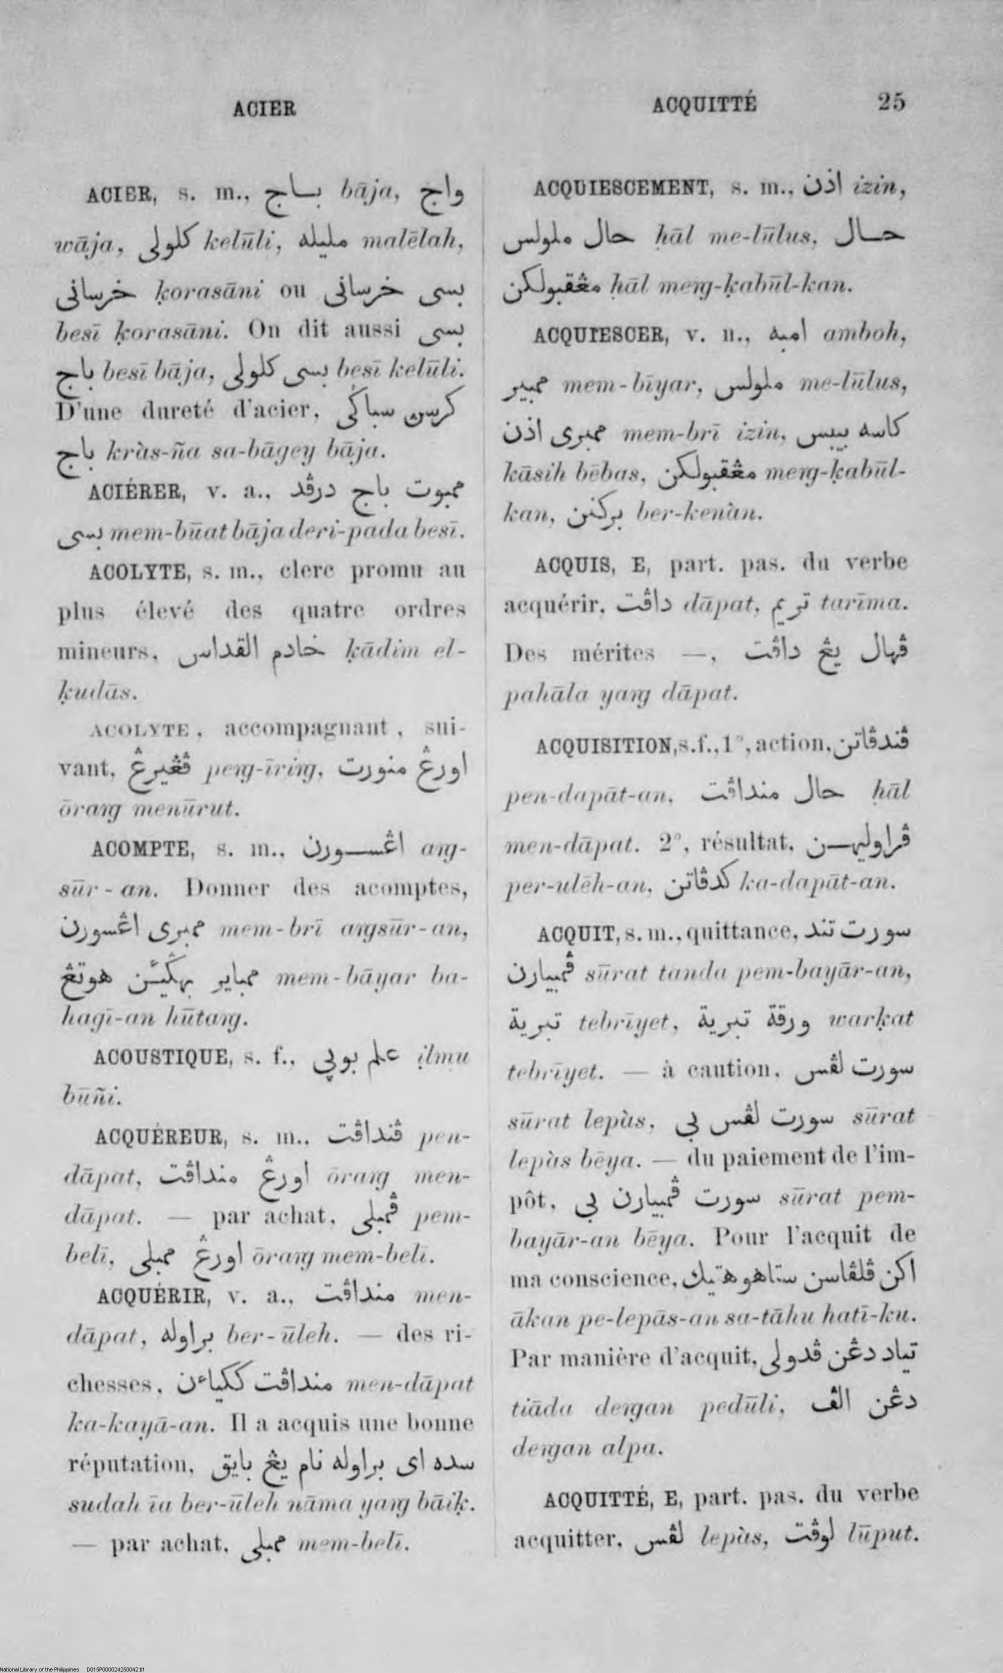 ACIER
ACQUITTÉ 25
ACIER, s. m., باج bāja, واج
wāja, كلولى kelūli, مليله malēlah,
خرساني ḳorasāni ou بسى خرسانى
besī ḳorasāni. On dit aussi بسى
باج besī bāja, بسى كلولى besī kelūli.
D'une dureté d'acier, كرسڽ سباڬى
باج kràs-ña sa-bāgey bāja.
ACIÉRER, v. a., ممبوت باج درڤد
بسى mem-būat bāja deri-pada besī.
ACOLYTE, s. m., clerc promu au
plus élevé des quatre ordres
mineurs, خادم القداس ḳādim el-
ḳudās.
ACOLYTE, accompagnant, sui-
vant, ڤڠيرڠ peŋ-īriŋ, اورڠ منورت
ōraŋ menūrut.
ACOMPTE, s. m., اڠسورن aŋ-
sūr-an. Donner des acomptes,
ممبرى اڠسورن mem-brī aŋsūr-an,
ممباير بهڬيئن هوتڠ mem-bāyar ba-
hagī-an hūtaŋ.
ACOUSTIQUE, s. f., علم بوڽي ilmu
būñi.
ACQUÉREUR, s. m., ڤنداڤت pen-
dāpat, اورڠ منداڤت ōraŋ men-
dāpat. — par achat, ڤمبلى pem-
belī, اورڠ ممبلى ōraŋ mem-belī.
ACQUÉRIR, v. a., منداڤت men-
dāpat, براوله ber-ūleh. — des ri-
chesses, منداڤت ككياءن men-dāpat
ka-kayā-an. Il a acquis une bonne
réputation, سده اى براوله نام يڠ بايق
sudah īa ber-ūleh nāma yaŋ bāiḳ.
— par achat, ممبلى mem-belī.
ACQUIESCEMENT, s. m., اذن izin,
حال ملولس ḥāl me-lūlus, حال
مڠقبولكن ḥāl meŋ-ḳabūl-kan.
ACQUIESCER, v. n., امبه amboh,
ممبير mem-bīyar, ملولس me-lūlus,
ممبرى اذن mem-brī izin, كاسه بيبس
kāsih bēbas, مڠقبولكن meŋ-ḳabūl-
kan, بركنن ber-kenàn.
ACQUIS, E, part. pas. du verbe
acquérir, داڤت dāpat, تريم tarīma.
Des mérites —, ڤهال يڠ داڤت
pahāla yaŋ dāpat.
ACQUISITION, s. f., 1°, action, ڤندڤاتن
pen-dapāt-an, حال منداڤت ḥāl
men-dāpat. 2°, résultat, ڤراوليهن
per-ulēh-an, كدڤاتن ka-dapāt-an.
ACQUIT, s. m., quittance, سورت تند
ڤمبيارن sūrat tanda pem-bayār-an,
تبرية tebrīyet, ورقة تبرية warḳat
tebrīyet. — à caution, سورت لڤس
sūrat lepàs, سورت لڤس بي sūrat
lepàs bēya. — du paiement de l'im-
pôt, سورت ڤمبيارن بي sūrat pem-
bayār-an bēya. Pour l'acquit de
ma conscience, اكن ڤلڤاسن ستاهو هتيك
ākan pe-lepās-an sa-tāhu hatī-ku.
Par manière d'acquit, تياد دڠن ڤدولى
tiāda deŋan pedūli, دڠن الڤ
deŋan alpa.
ACQUITTÉ, E, part. pas. du verbe
acquitter, لڤس lepàs, لوڤت lūput.
National Library of the Philippines